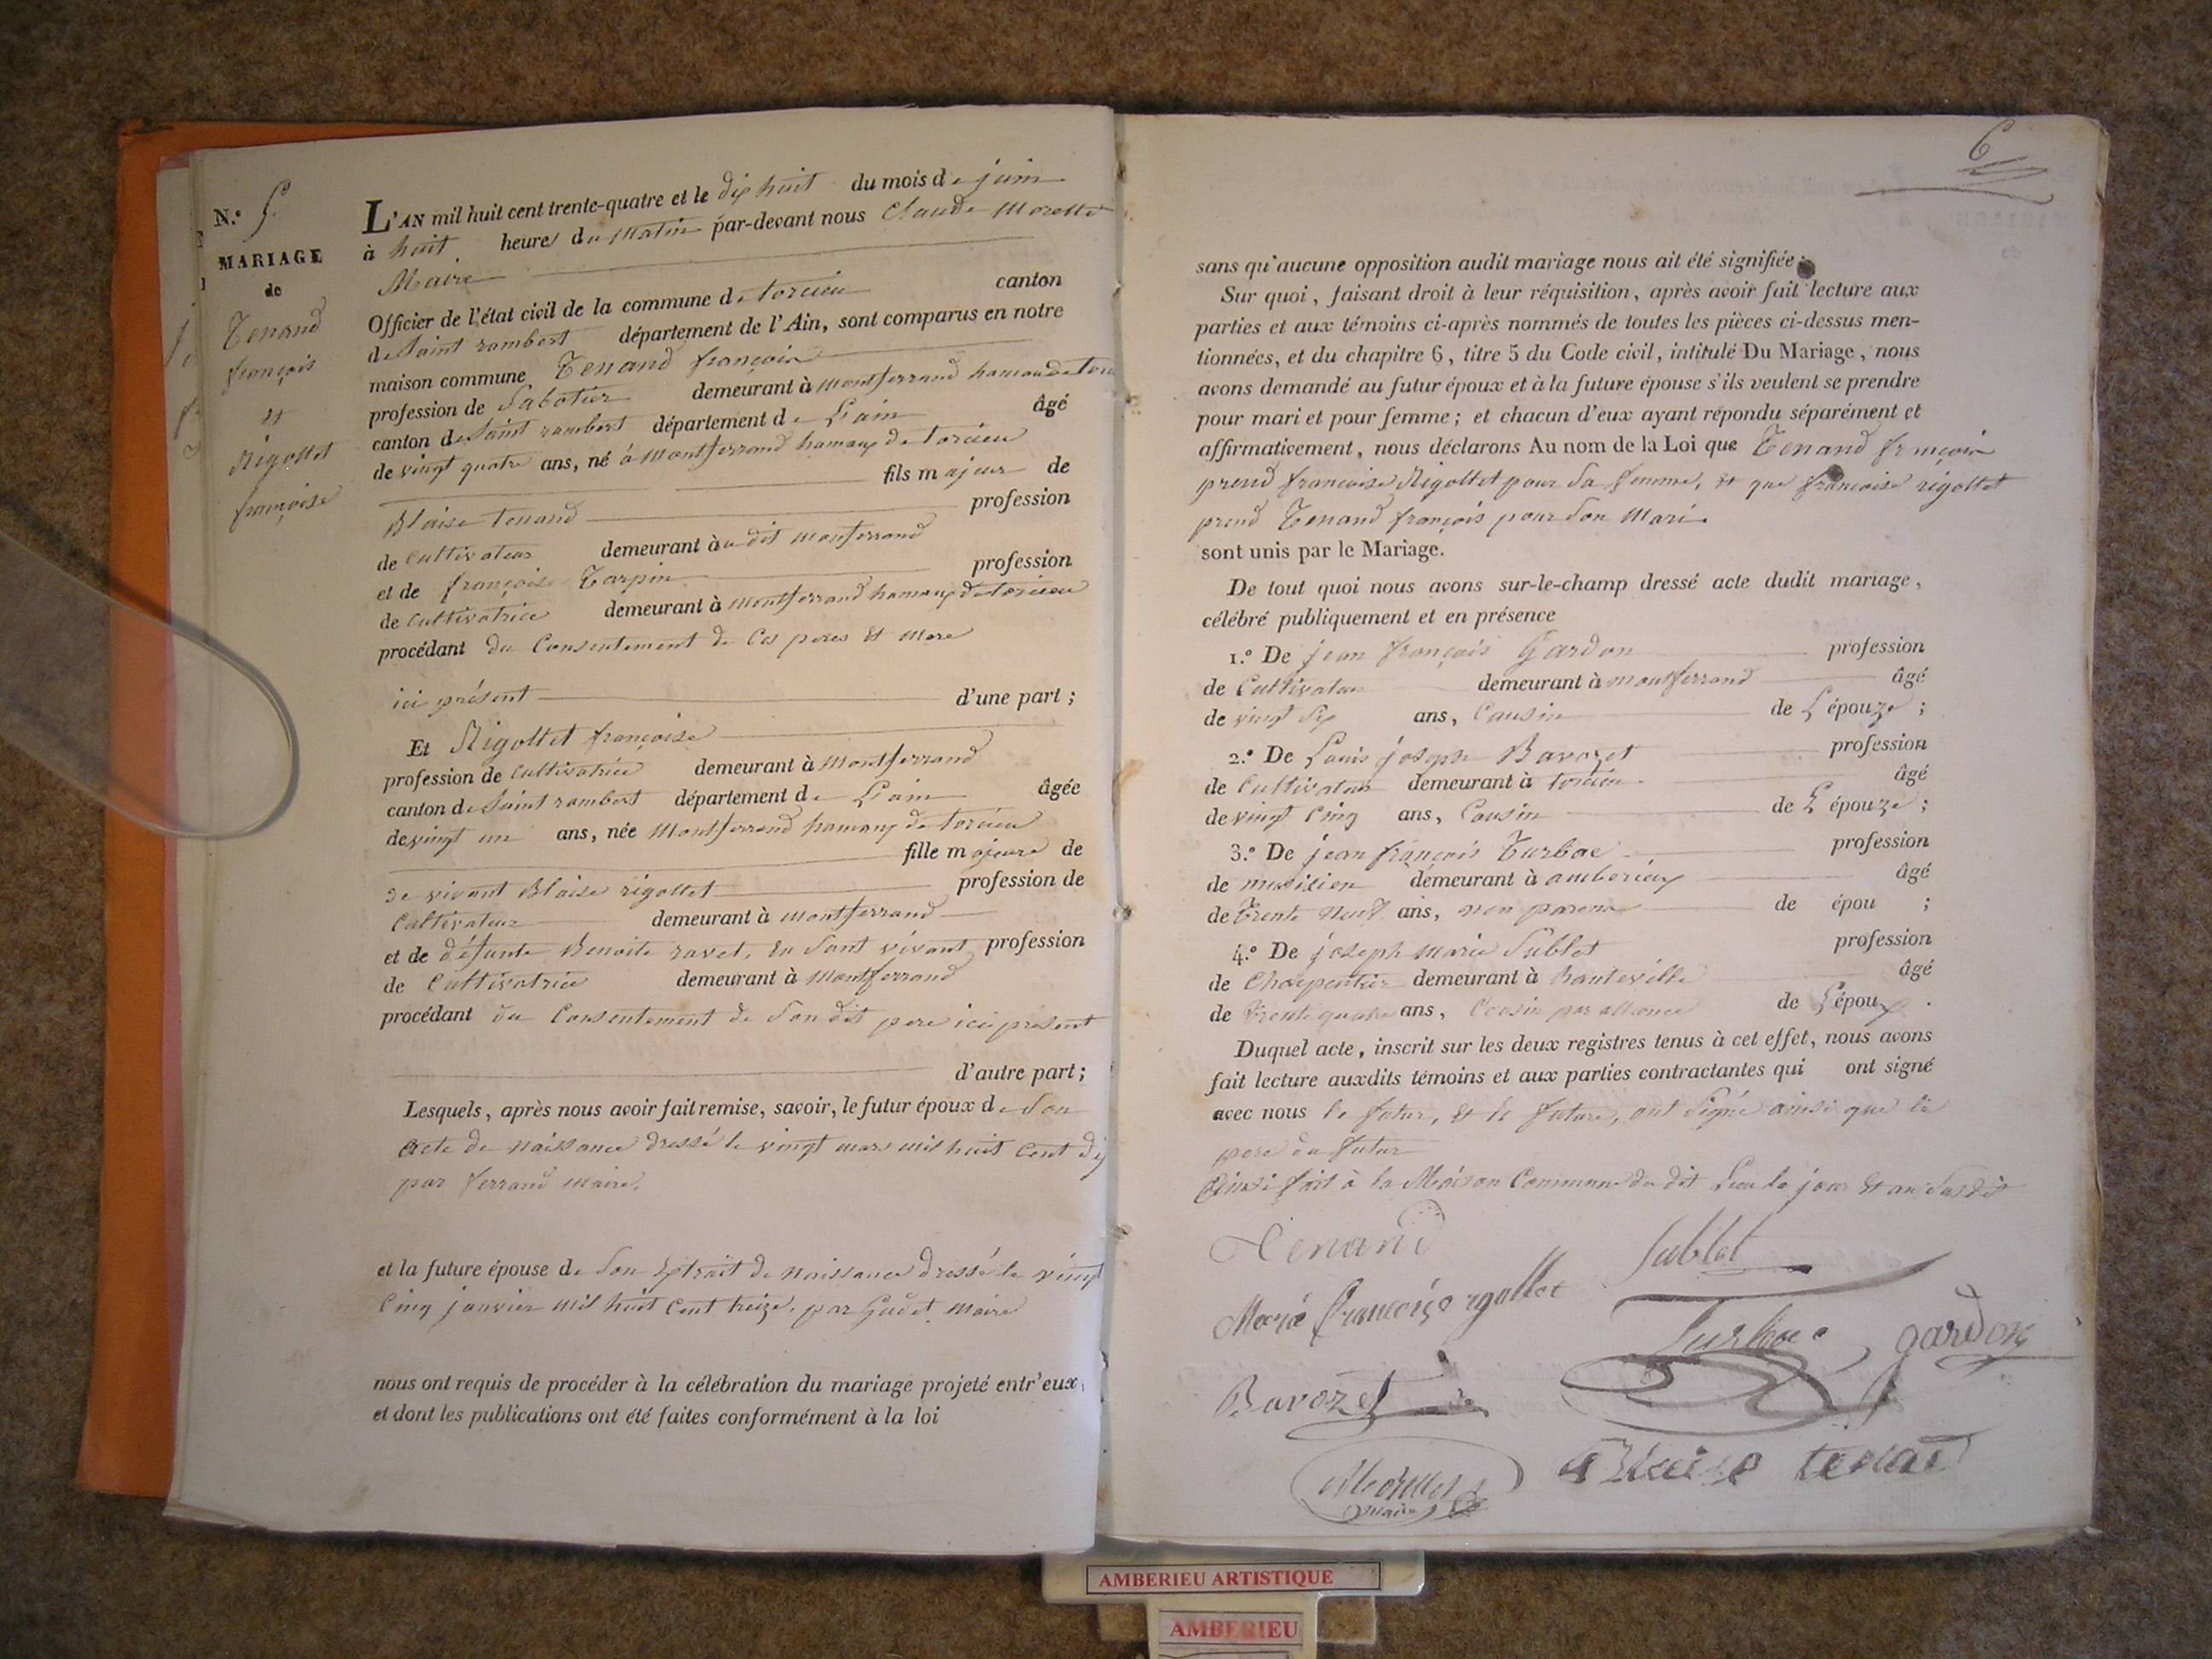 N.º 5.
MARIAGE
de
Tenand
françois
et
Rigollet
françoise
L'AN mil huit cent trente-quatre et le dix huit du mois de juin
à huit heures du matin par-devant nous Claude Morellet
Maire
Officier de l'état civil de la commune de torcieu canton
de Saint rambert département de l'Ain, sont comparus en notre
maison commune Tenand françois
profession de Sabotier demeurant à montferrand hamau de
canton de Saint rambert département de L'ain âgé
de vingt quatre ans, né à Montferrand hamaux de torcieu
fils majeur de
Blaise tenand profession
de Cultivateur demeurant à u dit montferrand
et de françoise Tarpin profession
de Cultivatrice demeurant à montferrand hamaux de torcieu
procédant du Consentement de Ces peres et mere
ici présent d'une part ;
Et Rigollet françoise
profession de Cultivatrice demeurant à Montferrand
canton de Saint rambert département de L'ain âgée
de vingt un ans, née Montferrand hamaux de torcieu
fille majeure de
de vivant Blaise rigollet profession de
Cultivateur demeurant à montferrand
et de défunte Benoite ravet, en Sont vivant profession
de Cultivatrice demeurant à Montferrand
procédant du Consentement de Son dit pere ici présent
d'autre part ;
Lesquels, après nous avoir fait remise, savoir, le futur époux de Son
Acte de naissance dressé le vingt mars mil huit Cent dix
par ferrand maire.
et la future épouse de Son Extrait de naissance dressé le vingt
Cinq janvier mil huit Cent treize. par Gudet maire
nous ont requis de procéder à la célébration du mariage projeté entr'eux,
et dont les publications ont été faites conformément à la loi
6
sans qu'aucune opposition audit mariage nous ait été signifiée ;
Sur quoi, faisant droit à leur réquisition, après avoir fait lecture aux
parties et aux témoins ci-après nommés de toutes les pièces ci-dessus men-
tionnées, et du chapitre 6, titre 5 du Code civil, intitulé Du Mariage, nous
avons demandé au futur époux et à la future épouse s'ils veulent se prendre
pour mari et pour femme ; et chacun d'eux ayant répondu séparément et
affirmativement, nous déclarons Au nom de la Loi que Tenand françois
prend francoise Rigollet pour Sa femme, et que francoise rigollet
prend Tenand françois pour Son Mari.
sont unis par le Mariage.
De tout quoi nous avons sur-le-champ dressé acte dudit mariage,
célébré publiquement et en présence
1.º De jean françois Gardon profession
de Cultivateur demeurant à montferrand âgé
de vingt Six ans, Cousin de L'épouze ;
2.º De Louis joseph Bavozet profession
de Cultivateur demeurant à torcieu âgé
de vingt Cinq ans, Cousin de L'épouze ;
3.º De jean françois Turbae profession
de musicien demeurant à amberieux âgé
de Trente Neuf ans, non parens de épou ;
4.º De joseph marie Sublet profession
de Charpentier demeurant à hauteville âgé
de Trente quatre ans, Cousin par alliance de L'époux .
Duquel acte, inscrit sur les deux registres tenus à cet effet, nous avons
fait lecture auxdits témoins et aux parties contractantes qui ont signé
avec nous le futur, et la future, ont Signé ainsi que le
pere du futur
Ainsi fait à la Maison Commune du dit Lieu le jour et an Susdit
Tenand
Sublet
Marie françoise rgollet
Turbae
gardon
Bavozet
Blaise tenad
Morellet
maire
AMBERIEU ARTISTIQUE
AMBERIEU